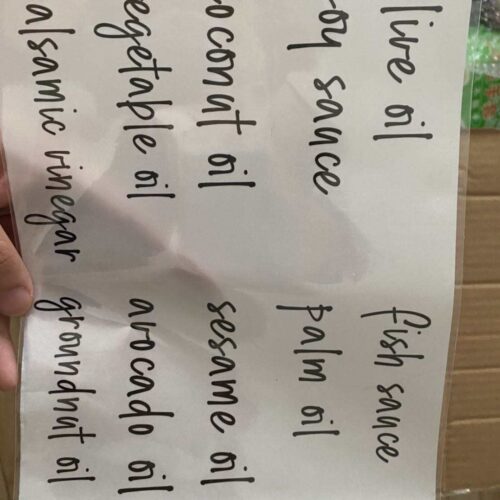 live oil fish sauce
oy sauce palm oil
oconut oil sesame oil
egetable oil avocado oil
alsamic vinegar groundnut oil